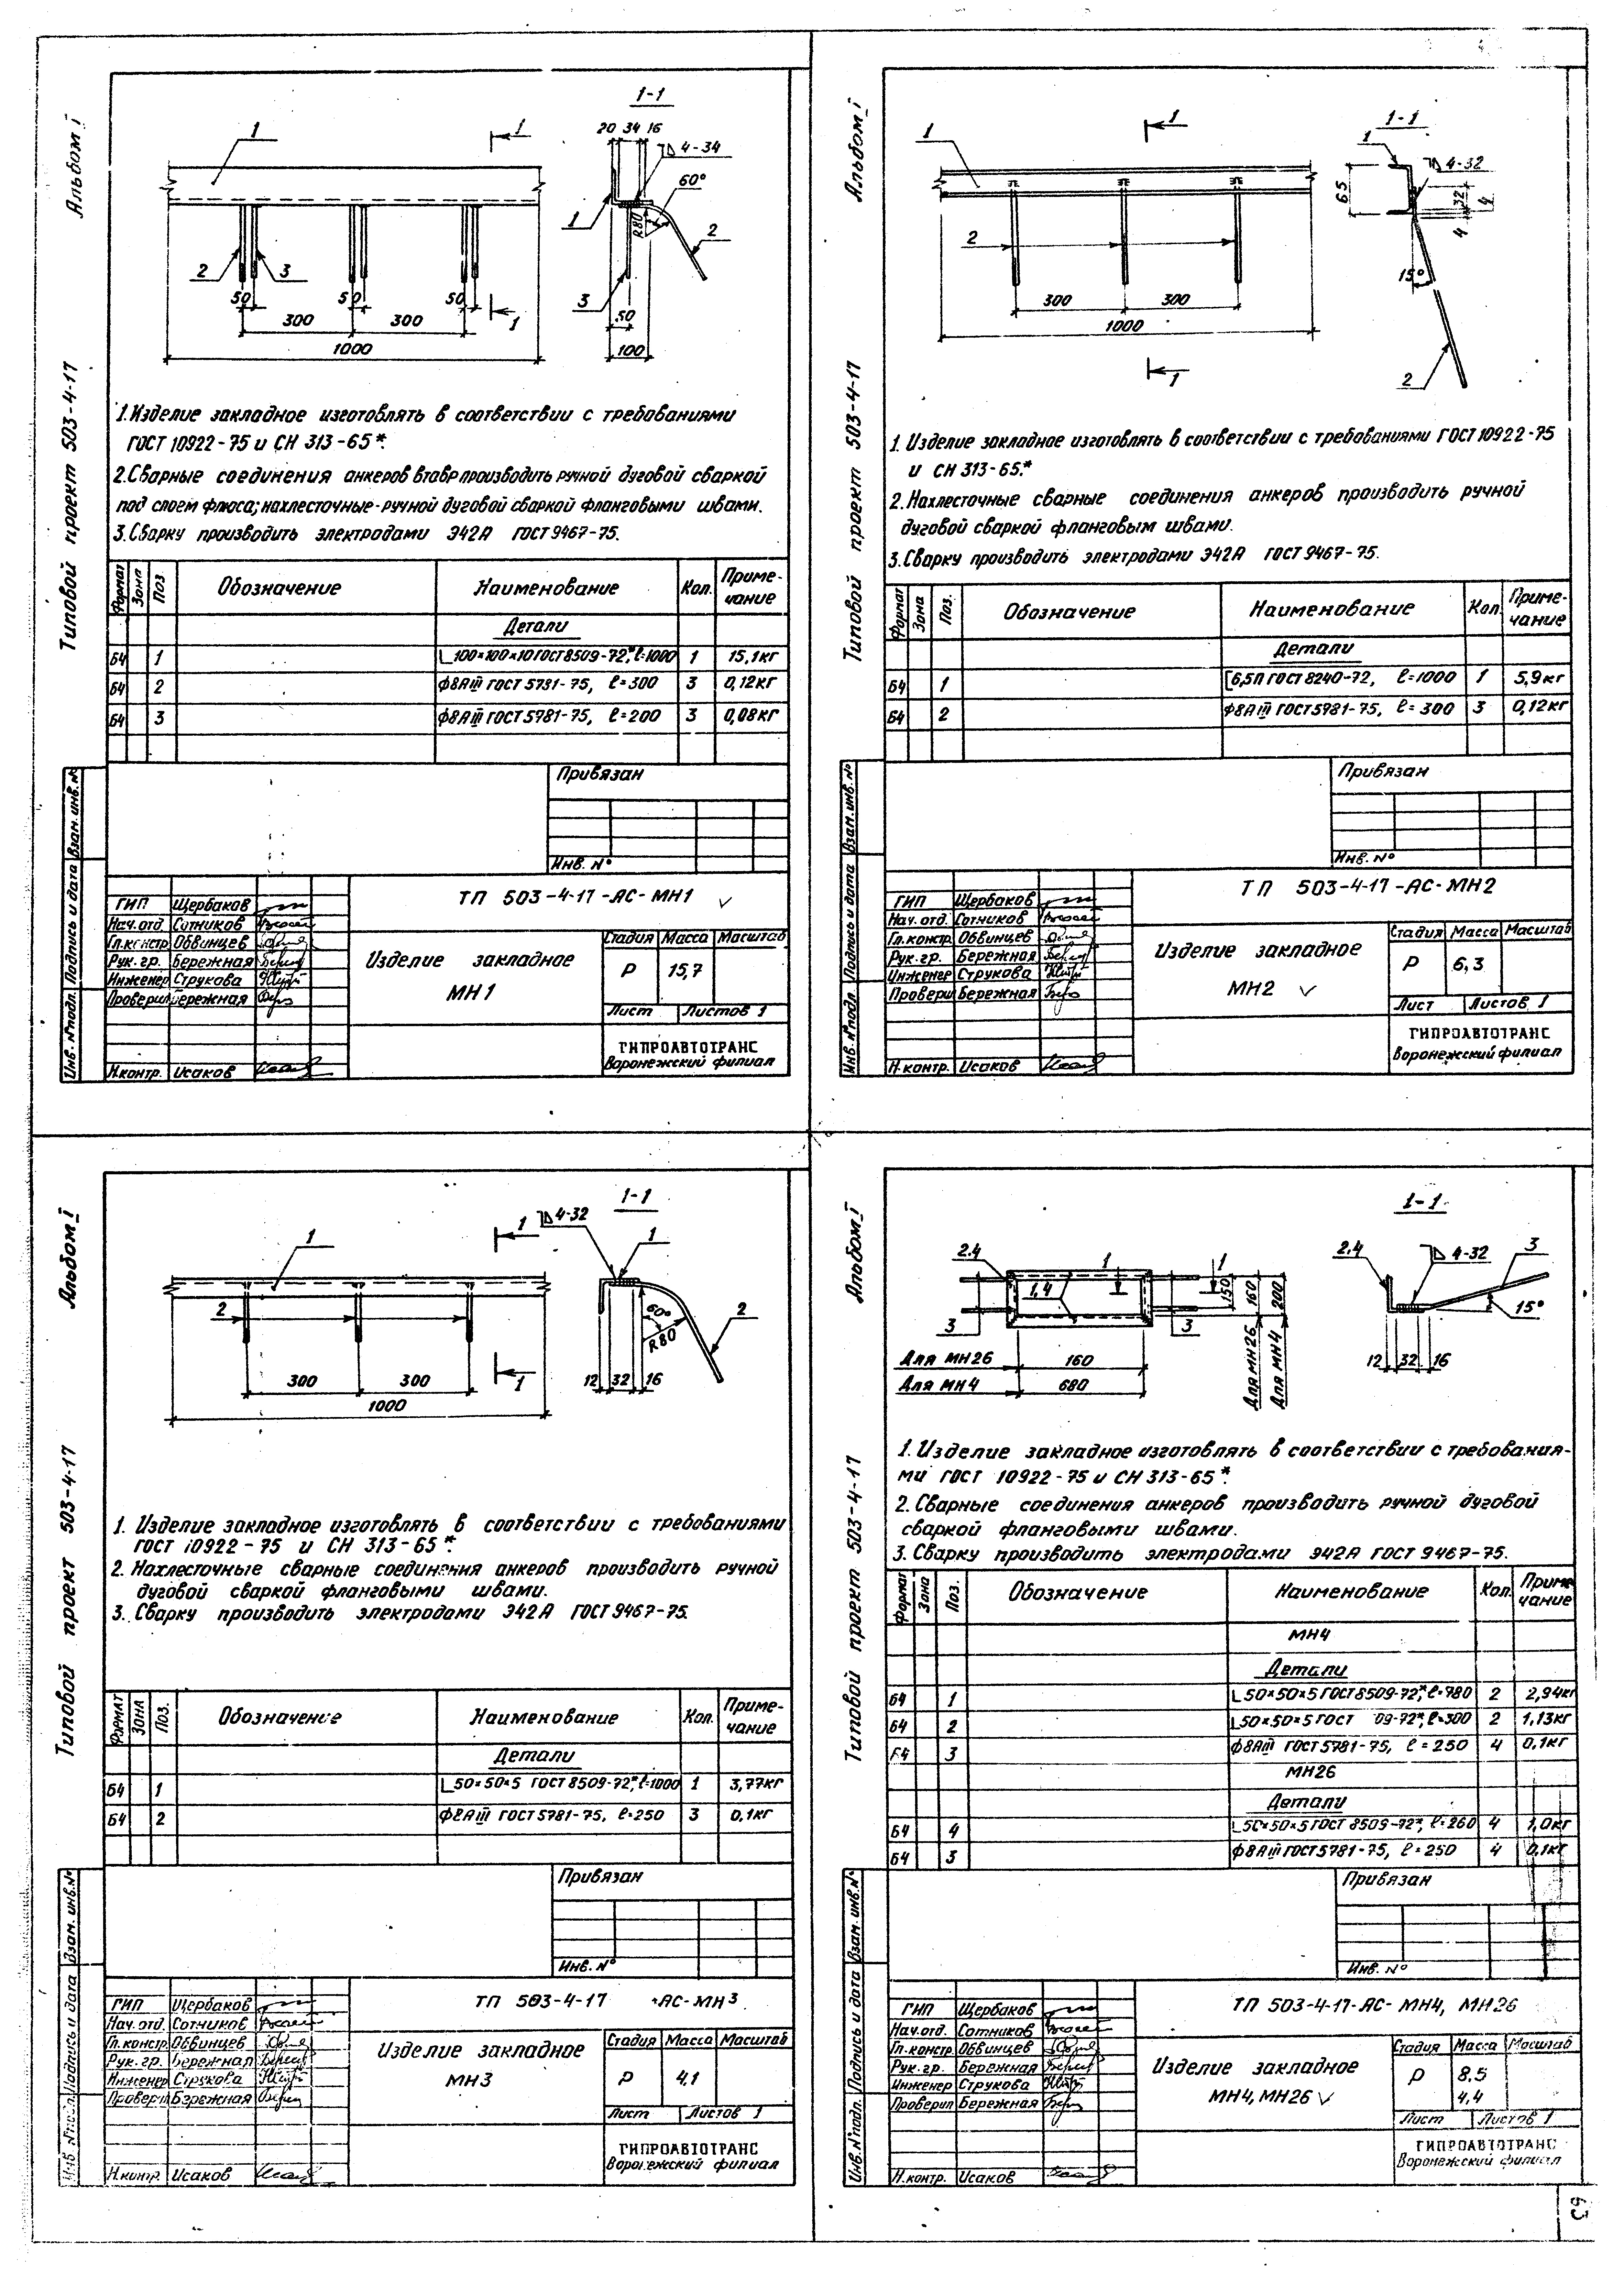 Альбом I
Типовой проект 503-4-17
1-1
1
1
20 34 16
4-34
60°
R80
1
2
3
2
3
50 50 50
300 300
1000
1
50
100
1. Изделие закладное изготовлять в соответствии с требованиями
ГОСТ 10922-75 и СН 313-65*.
2. Сварные соединения анкеров втавр производить ручной дуговой сваркой
под слоем флюса; нахлесточные-ручной дуговой сваркой фланговыми швами.
3. Сварку производить электродами Э42А ГОСТ 9467-75.
Формат Зона Поз Обозначение Наименование Кол. Приме-
чание
Детали
Б4 1 ∟100×100×10 ГОСТ 8509-72*, ℓ=1000 1 15,1кг
Б4 2 ф8АIII ГОСТ 5781-75, ℓ=300 3 0,12кг
Б4 3 ф8АIII ГОСТ 5781-75, ℓ=200 3 0,08кг
Привязан
Инв. №
Инв. № подл. Подпись и дата Взам. инв. №
ТП 503-4-17-АС-МН1
ГИП Щербаков
Нач. отд. Сотников
Гл. констр. Обвинцев
Рук. гр. Бережная
Инженер Струкова
Проверил Бережная
Н.контр. Исаков
Изделие закладное
МН1
Стадия Масса Масштаб
Р 15,7
Лист Листов 1
ГИПРОАВТОТРАНС
Воронежский филиал
Альбом I
Типовой проект 503-4-17
1
1
1-1
1
4-32
65
32
4
4
15°
2
2
300 300
1000
1
1. Изделие закладное изготовлять в соответствии с требованиями ГОСТ 10922-75
и СН 313-65.*
2. Нахлесточные сварные соединения анкеров производить ручной
дуговой сваркой фланговым швами.
3. Сварку производить электродами Э42А ГОСТ 9467-75.
Формат Зона Поз. Обозначение Наименование Кол. Приме-
чание
Детали
Б4 1 [6,5П ГОСТ 8240-72, ℓ=1000 1 5,9кг
Б4 2 ф8АIII ГОСТ 5781-75, ℓ=300 3 0,12кг
Привязан
Инв. №
Инв. № подл. Подпись и дата Взам. инв. №
ТП 503-4-17-АС-МН2
ГИП Щербаков
Нач. отд. Сотников
Гл. констр. Обвинцев
Рук. гр. Бережная
Инженер Струкова
Проверил Бережная
Н.контр. Исаков
Изделие закладное
МН2
Стадия Масса Масштаб
Р 6,3
Лист Листов 1
ГИПРОАВТОТРАНС
Воронежский филиал
Альбом I
Типовой проект 503-4-17
1-1
1
1
4-32
1
2
60°
R80
2
12 32 16
300 300
1000
1
1. Изделие закладное изготовлять в соответствии с требованиями
ГОСТ 10922-75 и СН 313-65*.
2. Нахлесточные сварные соединения анкеров производить ручной
дуговой сваркой фланговыми швами.
3. Сварку производить электродами Э42А ГОСТ 9467-75.
Формат Зона Поз. Обозначение Наименование Кол. Приме-
чание
Детали
Б4 1 ∟50×50×5 ГОСТ 8509-72*, ℓ=1000 1 3,77кг
Б4 2 ф8АIII ГОСТ 5781-75, ℓ=250 3 0,1кг
Привязан
Инв. №
Инв. № подл. Подпись и дата Взам. инв. №
ТП 503-4-17 -АС-МН3
ГИП Щербаков
Нач. отд. Сотников
Гл. констр. Обвинцев
Рук. гр. Бережная
Инженер Струкова
Проверил Бережная
Н.контр. Исаков
Изделие закладное
МН3
Стадия Масса Масштаб
Р 4,1
Лист Листов 1
ГИПРОАВТОТРАНС
Воронежский филиал
Альбом I
Типовой проект 503-4-17
1-1
2.4
1
1
1,4
3
3
150
160
200
Для МН26
Для МН4
Для МН26 160
Для МН4 680
2.4
4-32
3
15°
12 32 16
1. Изделие закладное изготовлять в соответствии с требования-
ми ГОСТ 10922-75 и СН 313-65*.
2. Сварные соединения анкеров производить ручной дуговой
сваркой фланговыми швами.
3. Сварку производить электродами Э42А ГОСТ 9467-75.
Формат Зона Поз. Обозначение Наименование Кол. Приме-
чание
МН4
Детали
Б4 1 ∟50×50×5 ГОСТ 8509-72*, ℓ=780 2 2,94кг
Б4 2 ∟50×50×5 ГОСТ 09-72*, ℓ=300 2 1,13кг
Б4 3 ф8АIII ГОСТ 5781-75, ℓ=250 4 0,1кг
МН26
Детали
Б4 4 ∟50×50×5 ГОСТ 8509-72*, ℓ=260 4 1,0кг
Б4 3 ф8АIII ГОСТ 5781-75, ℓ=250 4 0,1кг
Привязан
Инв. №
Инв. № подл. Подпись и дата Взам. инв. №
ТП 503-4-17-АС-МН4, МН26
ГИП Щербаков
Нач. отд. Сотников
Гл. констр. Обвинцев
Рук. гр. Бережная
Инженер Струкова
Проверил Бережная
Н.контр. Исаков
Изделие закладное
МН4, МН26
Стадия Масса Масштаб
Р 8,5
4,4
Лист Листов 1
ГИПРОАВТОТРАНС
Воронежский филиал